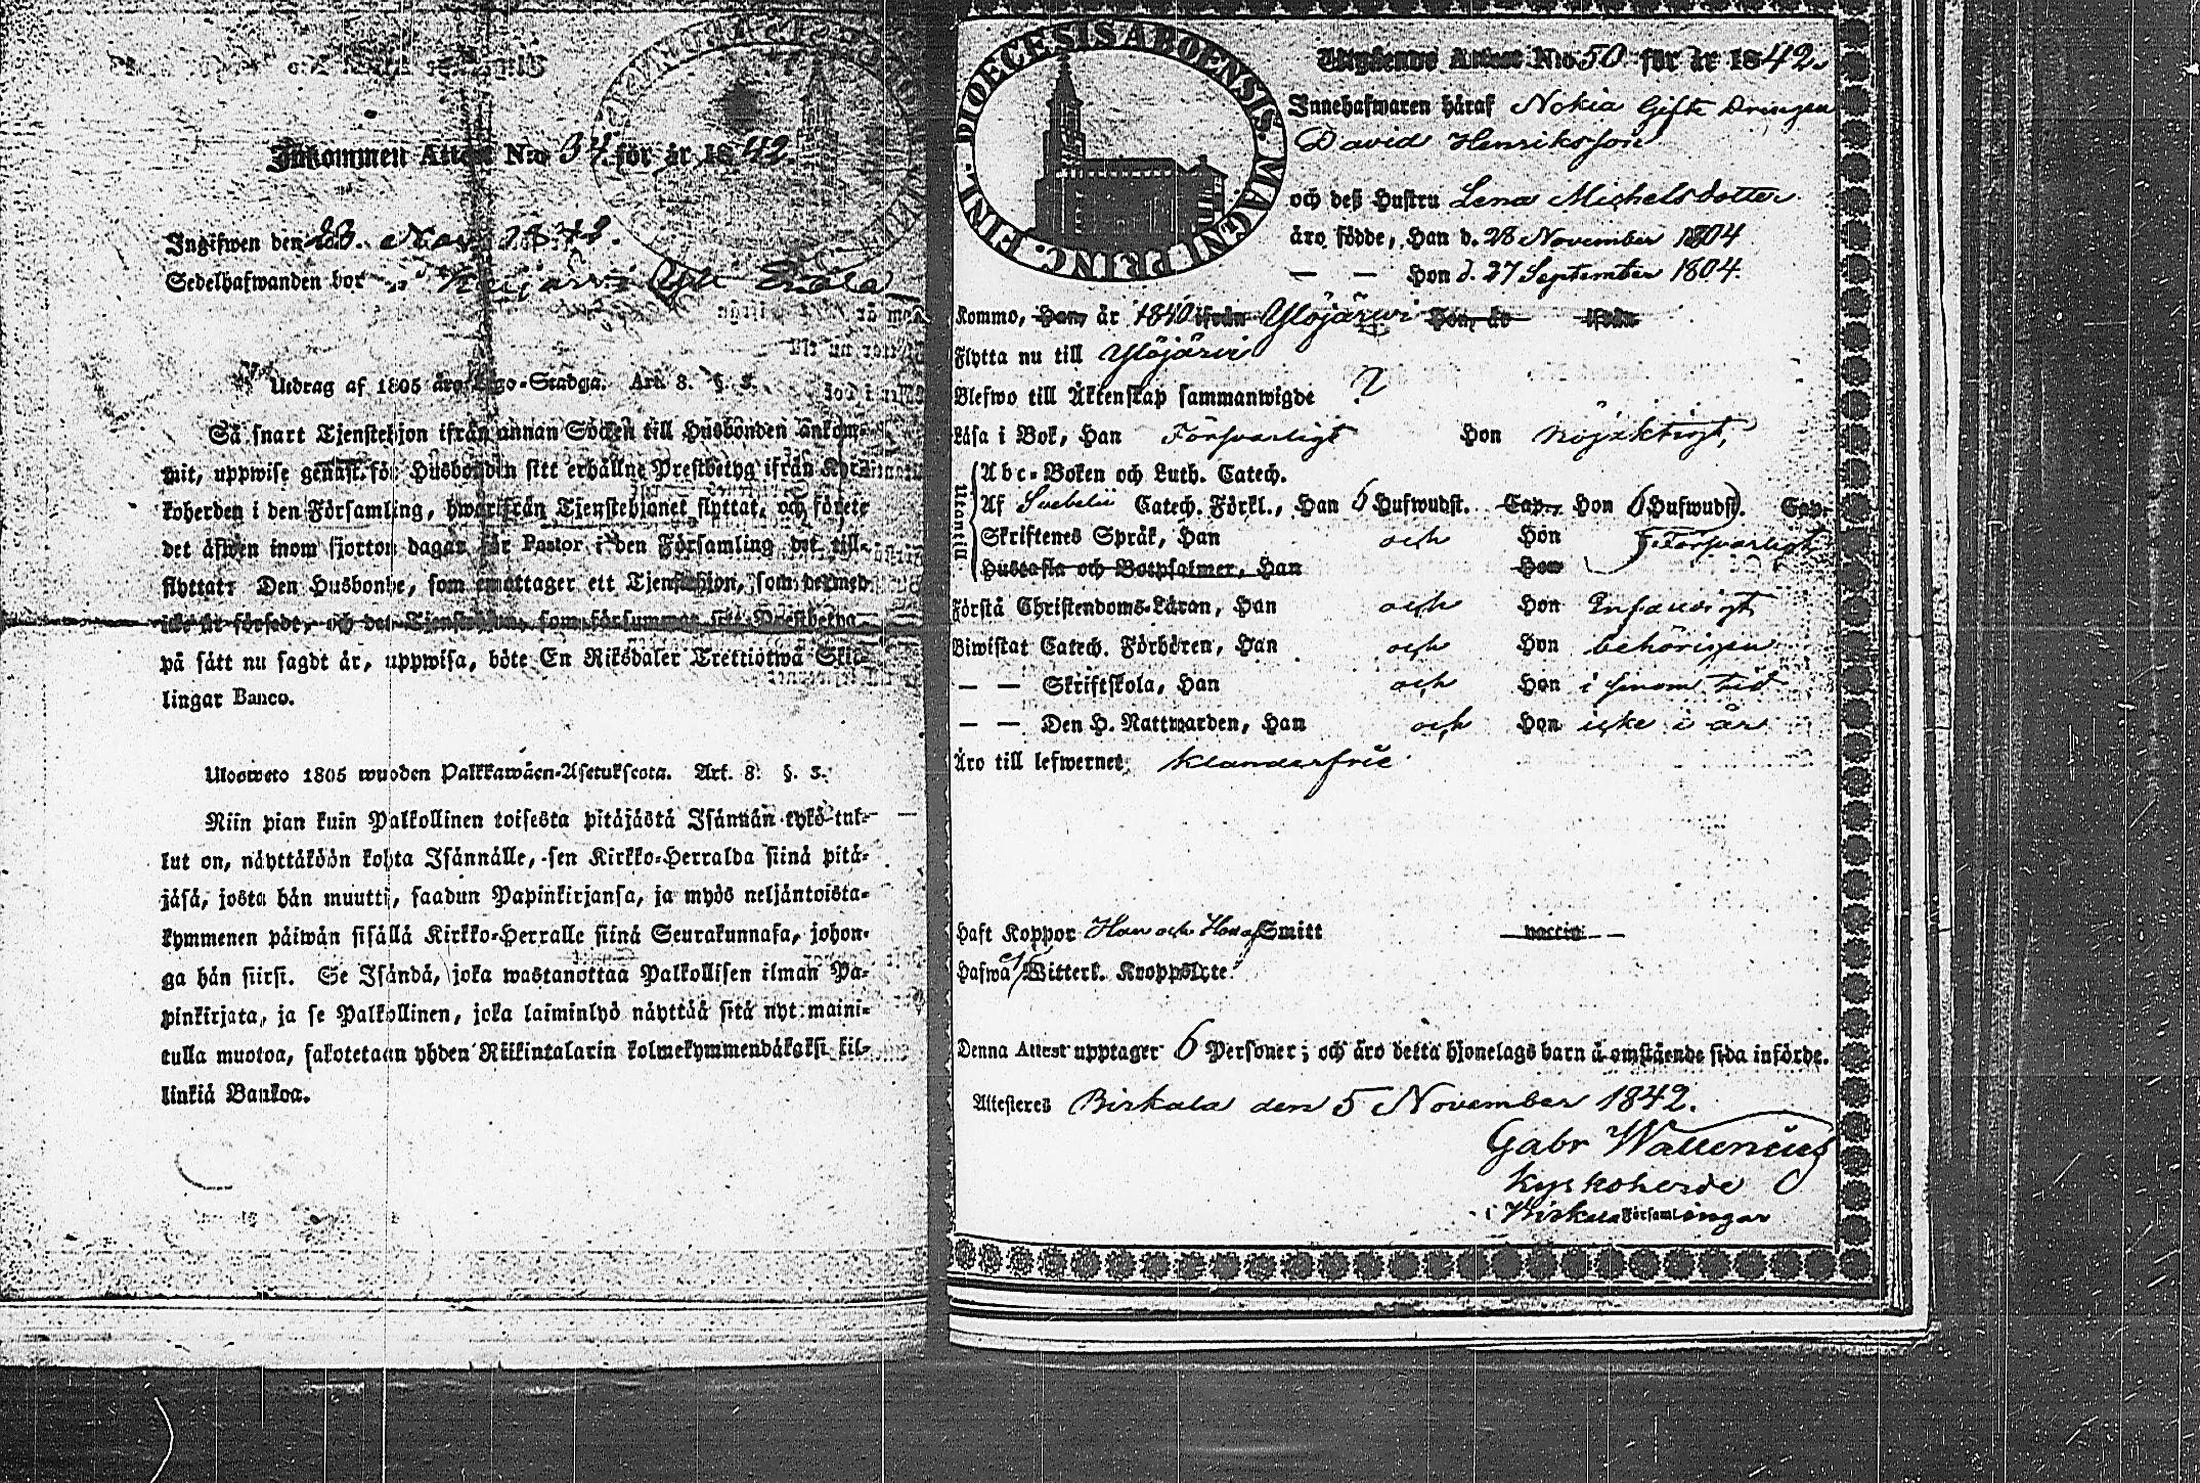 Inkommen Attest N:o 34 för år 1842.
Ingifwen den 23. Nov. 1842.
Sedelhafwanden bor
Utdrag af 1805 års Lego-Stadga. Art. 8. §. 3.
Så snart Tjenstehjon ifrån annan Socken till Husbonden ankom-
mit, uppwise genast för Husbonden sitt erhållne Prestbetyg ifrån Kyr-
koherden i den Församling, hwarifrån Tjenstehjonet flyttat, och förete
det äfwen inom fjorton dagar för Pastor i den Församling det till-
flyttat. Den Husbonde, som emottager ett Tjenstehjon, som dermed
icke är försedt, och det Tjenstehjon, som försummar sitt Prestbetyg
på sått nu sagdt är, uppwisa, böte En Riksdaler Trettiotwå Skil-
lingar Banco.
Ulosweto 1805 wuoden Palkkawäen-Asetuksesta. Art. 8. §. 3.
Niin pian kuin Palkollinen toisesta pitäjästä Isännän tykö tul-
lut on, näyttäköön kohta Isännälle, sen Kirkko-Herralda siinä pitä-
jäsä, josta hän muutti, saadun Papinkirjansa, ja myös neljäntoista-
kymmenen päiwän sisällä Kirkko-Herralle siinä Seurakunnasa, johon-
ga hän siirsi. Se Isändä, joka wastanottaa Palkollisen ilman Pa-
pinkirjata, ja se Palkollinen, joka laiminlyö näyttää sitä nyt maini-
tulla muotoa, sakotetaan yhden Riikintalarin kolmekymmendäkaksi kil-
linkiä Bankoa.
DIOECESIS ABOENSIS. MAGNI PRINC. FINL.
Utgående Attest N:o 50 för år 1842.
Innehafwaren häraf Nokia Gifte Drengen
David Henriksson
och deß Hustru Lena Michelsdotter
äro födde, Han d. 28 November 1804
— — Hon d. 27 September 1804.
Kommo, Han, år 1840 ifrån Ylöjärwi Hon, år ifrån
Flytta nu till Ylöjärwi
Blefwo till Äktenskap sammanwigde ?
Läsa i Bok, Han Förswarligt Hon nöjaktigt,
Utantill
Abc-Boken och Luth. Catech.
Af Svebelii Catech. Förkl., Han 6 Hufwudst. Cap. Hon 6 Hufwudst. Cap.
Skriftenes Språk, Han och Hon Förswarligt
Hustafla och Botpsalmer, Han Hon
Förstå Christendoms-Läran, Han och Hon Enfaldigt
Biwistat Catech. Förhören, Han och Hon behörigen
— — Skriftskola, Han och Hon i sinom tid
— — Den H. Nattwarden, Han och Hon icke i år
Äro till lefwernet klanderfrie
Haft Koppor Han och Hon af Smitt vaccin
Hafwa Witterl. Kroppslyte
Denna Attest upptager 6 Personer; och äro detta hjonelags barn å omstående sida införde.
Attesteres Birkala den 5 November 1842.
Gabr Wallenius
Kyrkoherde
i Birkala Församlingar